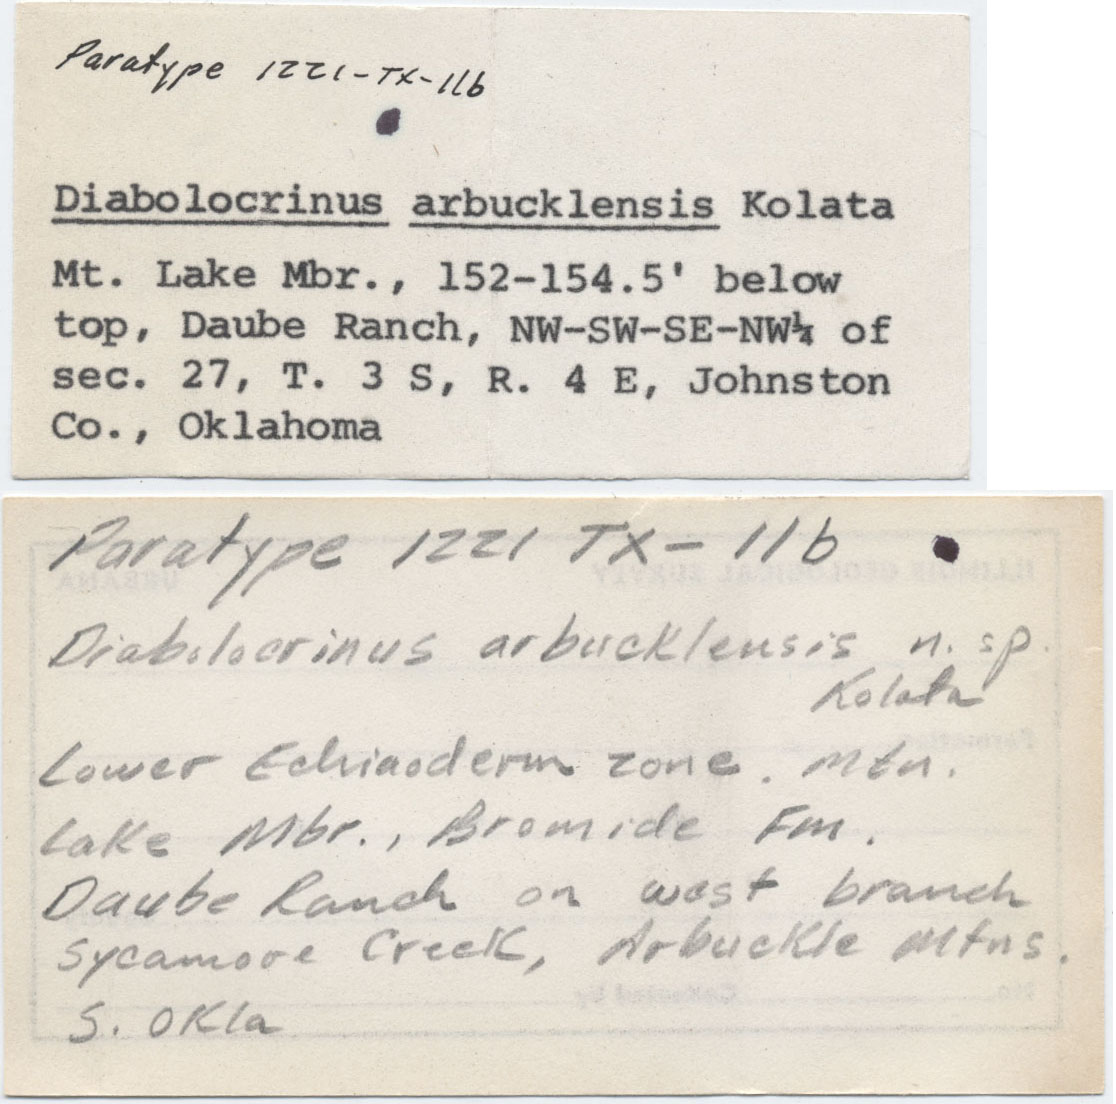 Paratype 1221-TX-11b
Diabolocrinus arbucklensis Kolata
Mt. Lake Mbr., 152-154.5' below
top, Daube Ranch, NW-SW-SE-NW¼ of
sec. 27, T. 3 S, R. 4 E, Johnston
Co., Oklahoma
Paratype 1221 TX-11b
ILLINOIS GEOLOGICAL SURVEY URBANA
Diabolocrinus arbucklensis n. sp.
Kolata
Formation
Lower Echinoderm zone. Mtn.
Lake Mbr., Bromide Fm.
Daube Ranch on west branch
Sycamore Creek, Arbuckle Mtns.
No. Collected by
S. Okla